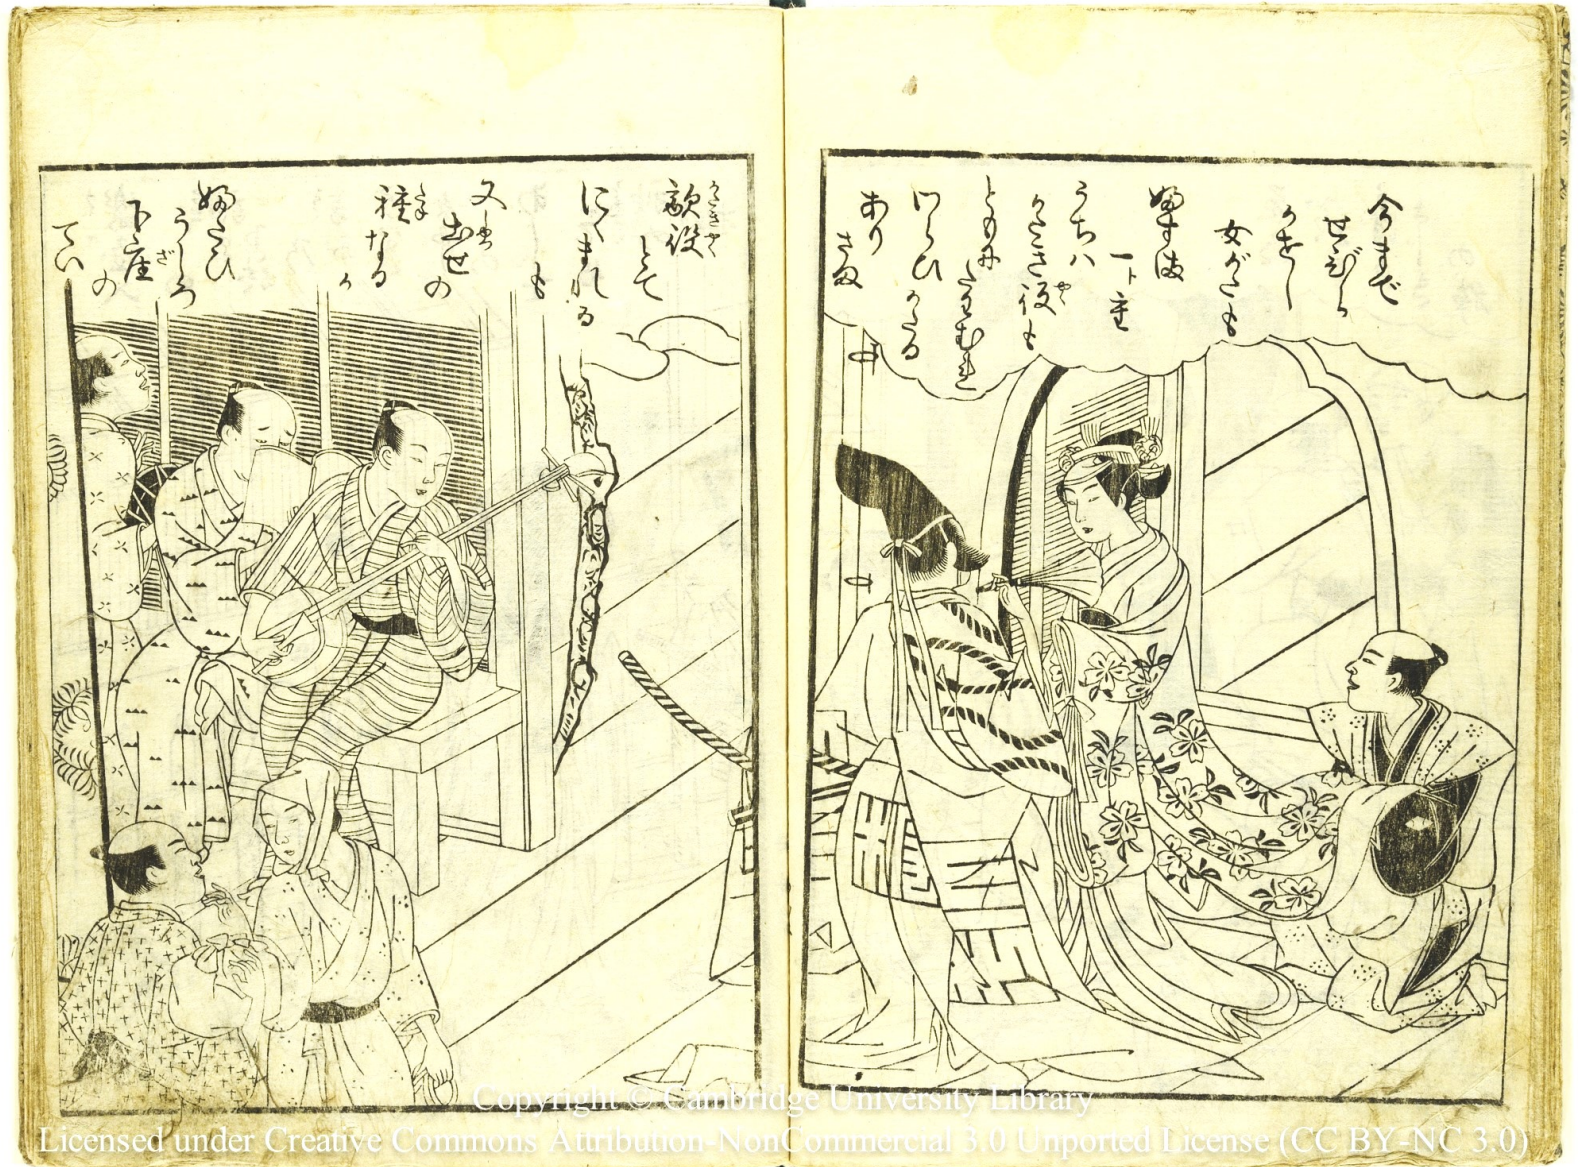 今まで
せびら
かせし
女がたも
幕すぎ
一ト重
うちハ
かたき役も
ともに
たはむれ
わらひ
かたる
あり
さま
敵役
とて
にくまれる
も
又出世の
種なる
か
うしろ
下座
の
てい
Copyright © Cambridge University Library
Licensed under Creative Commons Attribution-NonCommercial 3.0 Unported License (CC BY-NC 3.0)